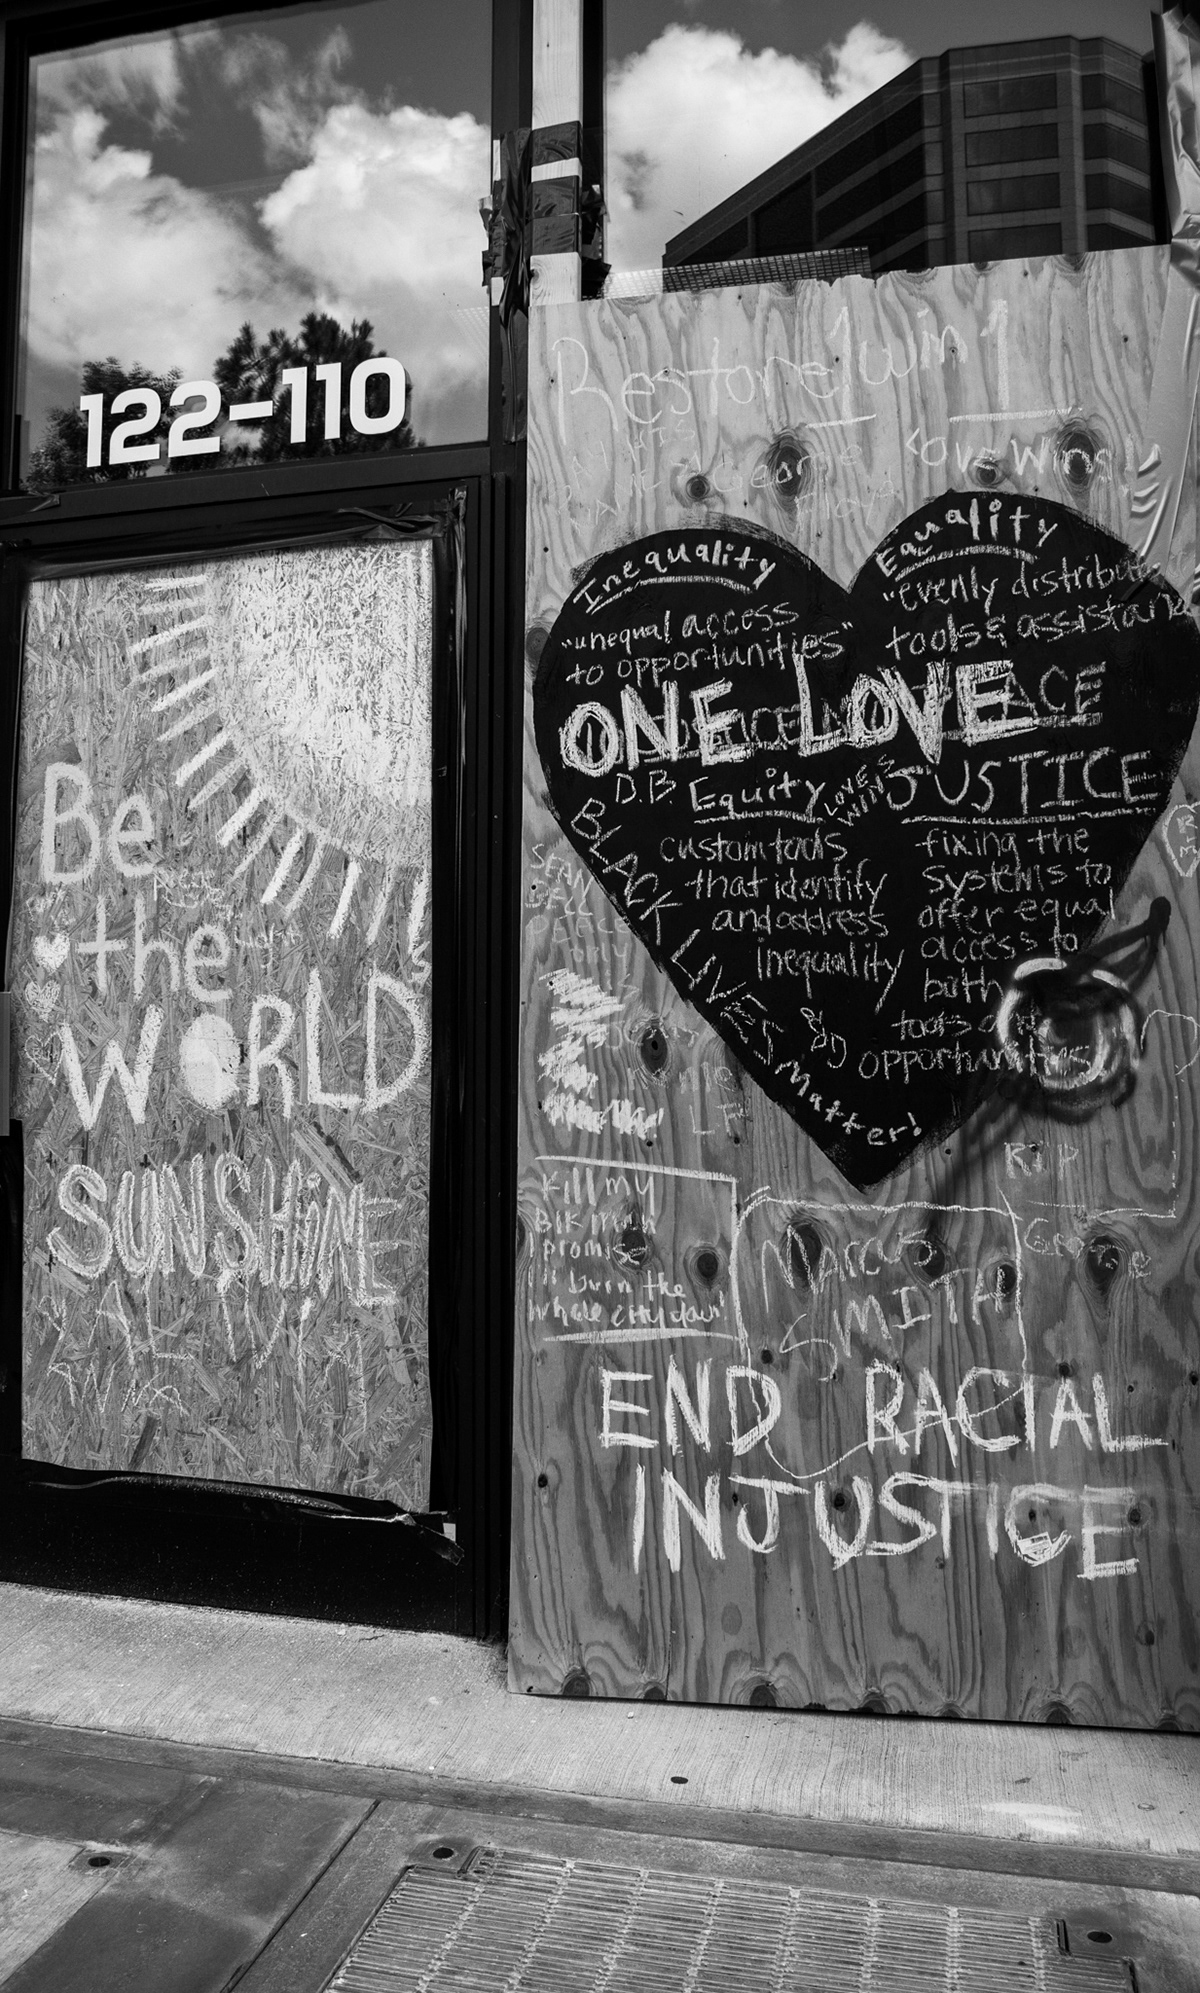 122-110
Be
the
WORLD
SUNSHINE
Restore 1 win 1
George
Floyd
Love Wins
Inequality
"unequal access
to opportunities"
Equality
"evenly distribute
tools & assistance
ONE LOVE
PEACE
D.B.
Equity
custom tools
that identify
and address
inequality
LOVE
WINS
JUSTICE
fixing the
systems to
offer equal
access to
both
tools and
opportunities
BLACK LIVES Matter!
SEAN
BELL
PEACE
only
RIP
George
Kill my
Blk man
I promise
I'll burn the
whole city down!
MARCUS
SMITH
END RACIAL
INJUSTICE